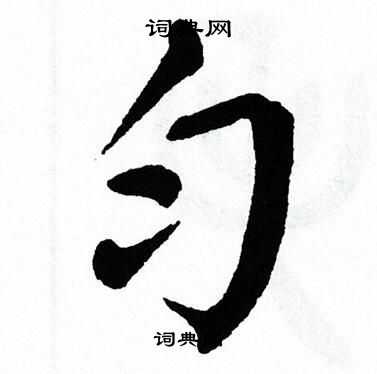 词典网
匀
词典网